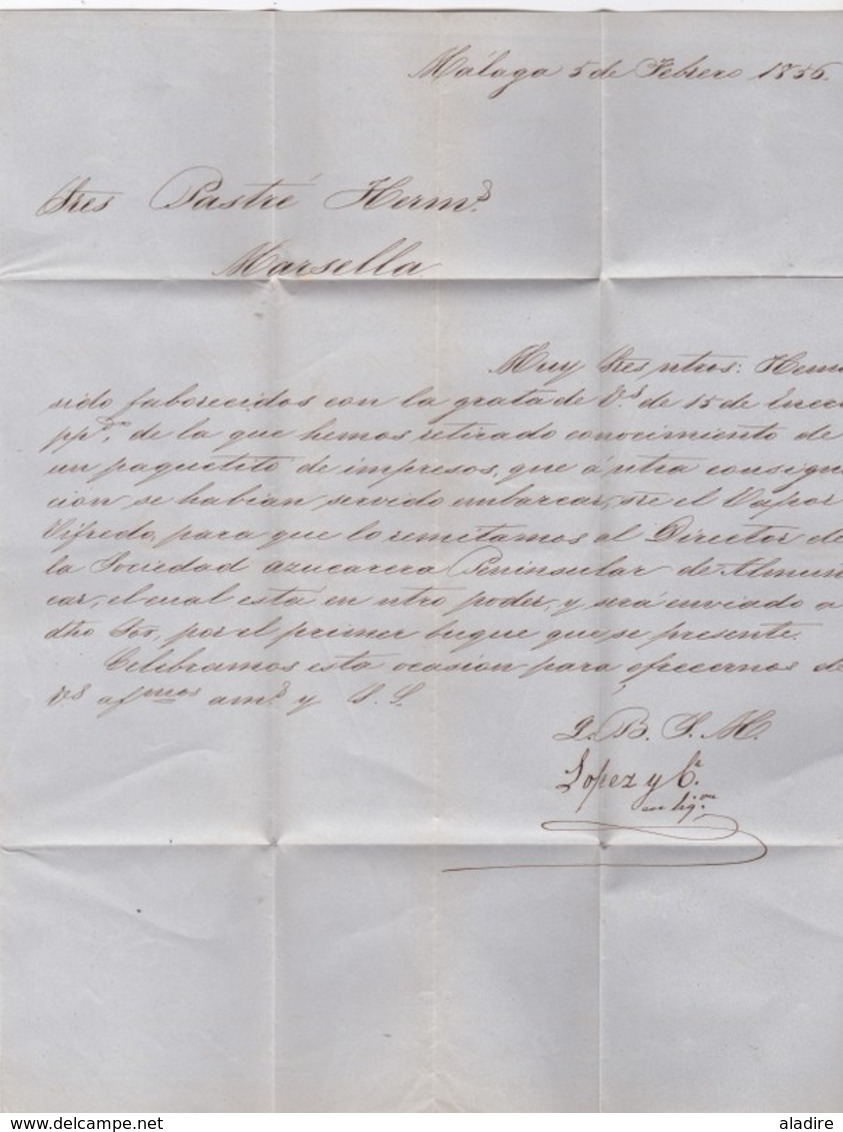 Málaga 5 de Febrero 1856.
Sres Pastré Herms.
Marsella
Muy Sres ntros: Hemo
sido faborecidos con la grata de Vs. de 15 de Enero
pp.do, de la que hemos retirado conocimiento de
un paquetito de impresos, que á ntra consigna
cion se habian servido embarcar, sre el Vapor
Vifredo, para que lo remitamos al Director de
la Sociedad azucarera Peninsular de Almuñ
car, el cual está en ntro poder, y será enviado a
dho Sor, por el primer buque que se presente.
Celebramos esta ocasion para ofrecernos de
Vs afmos ams. y S. S.
Q. B. S. M.
Lopez y Ca.
en liq.on
delcampe.net
aladire